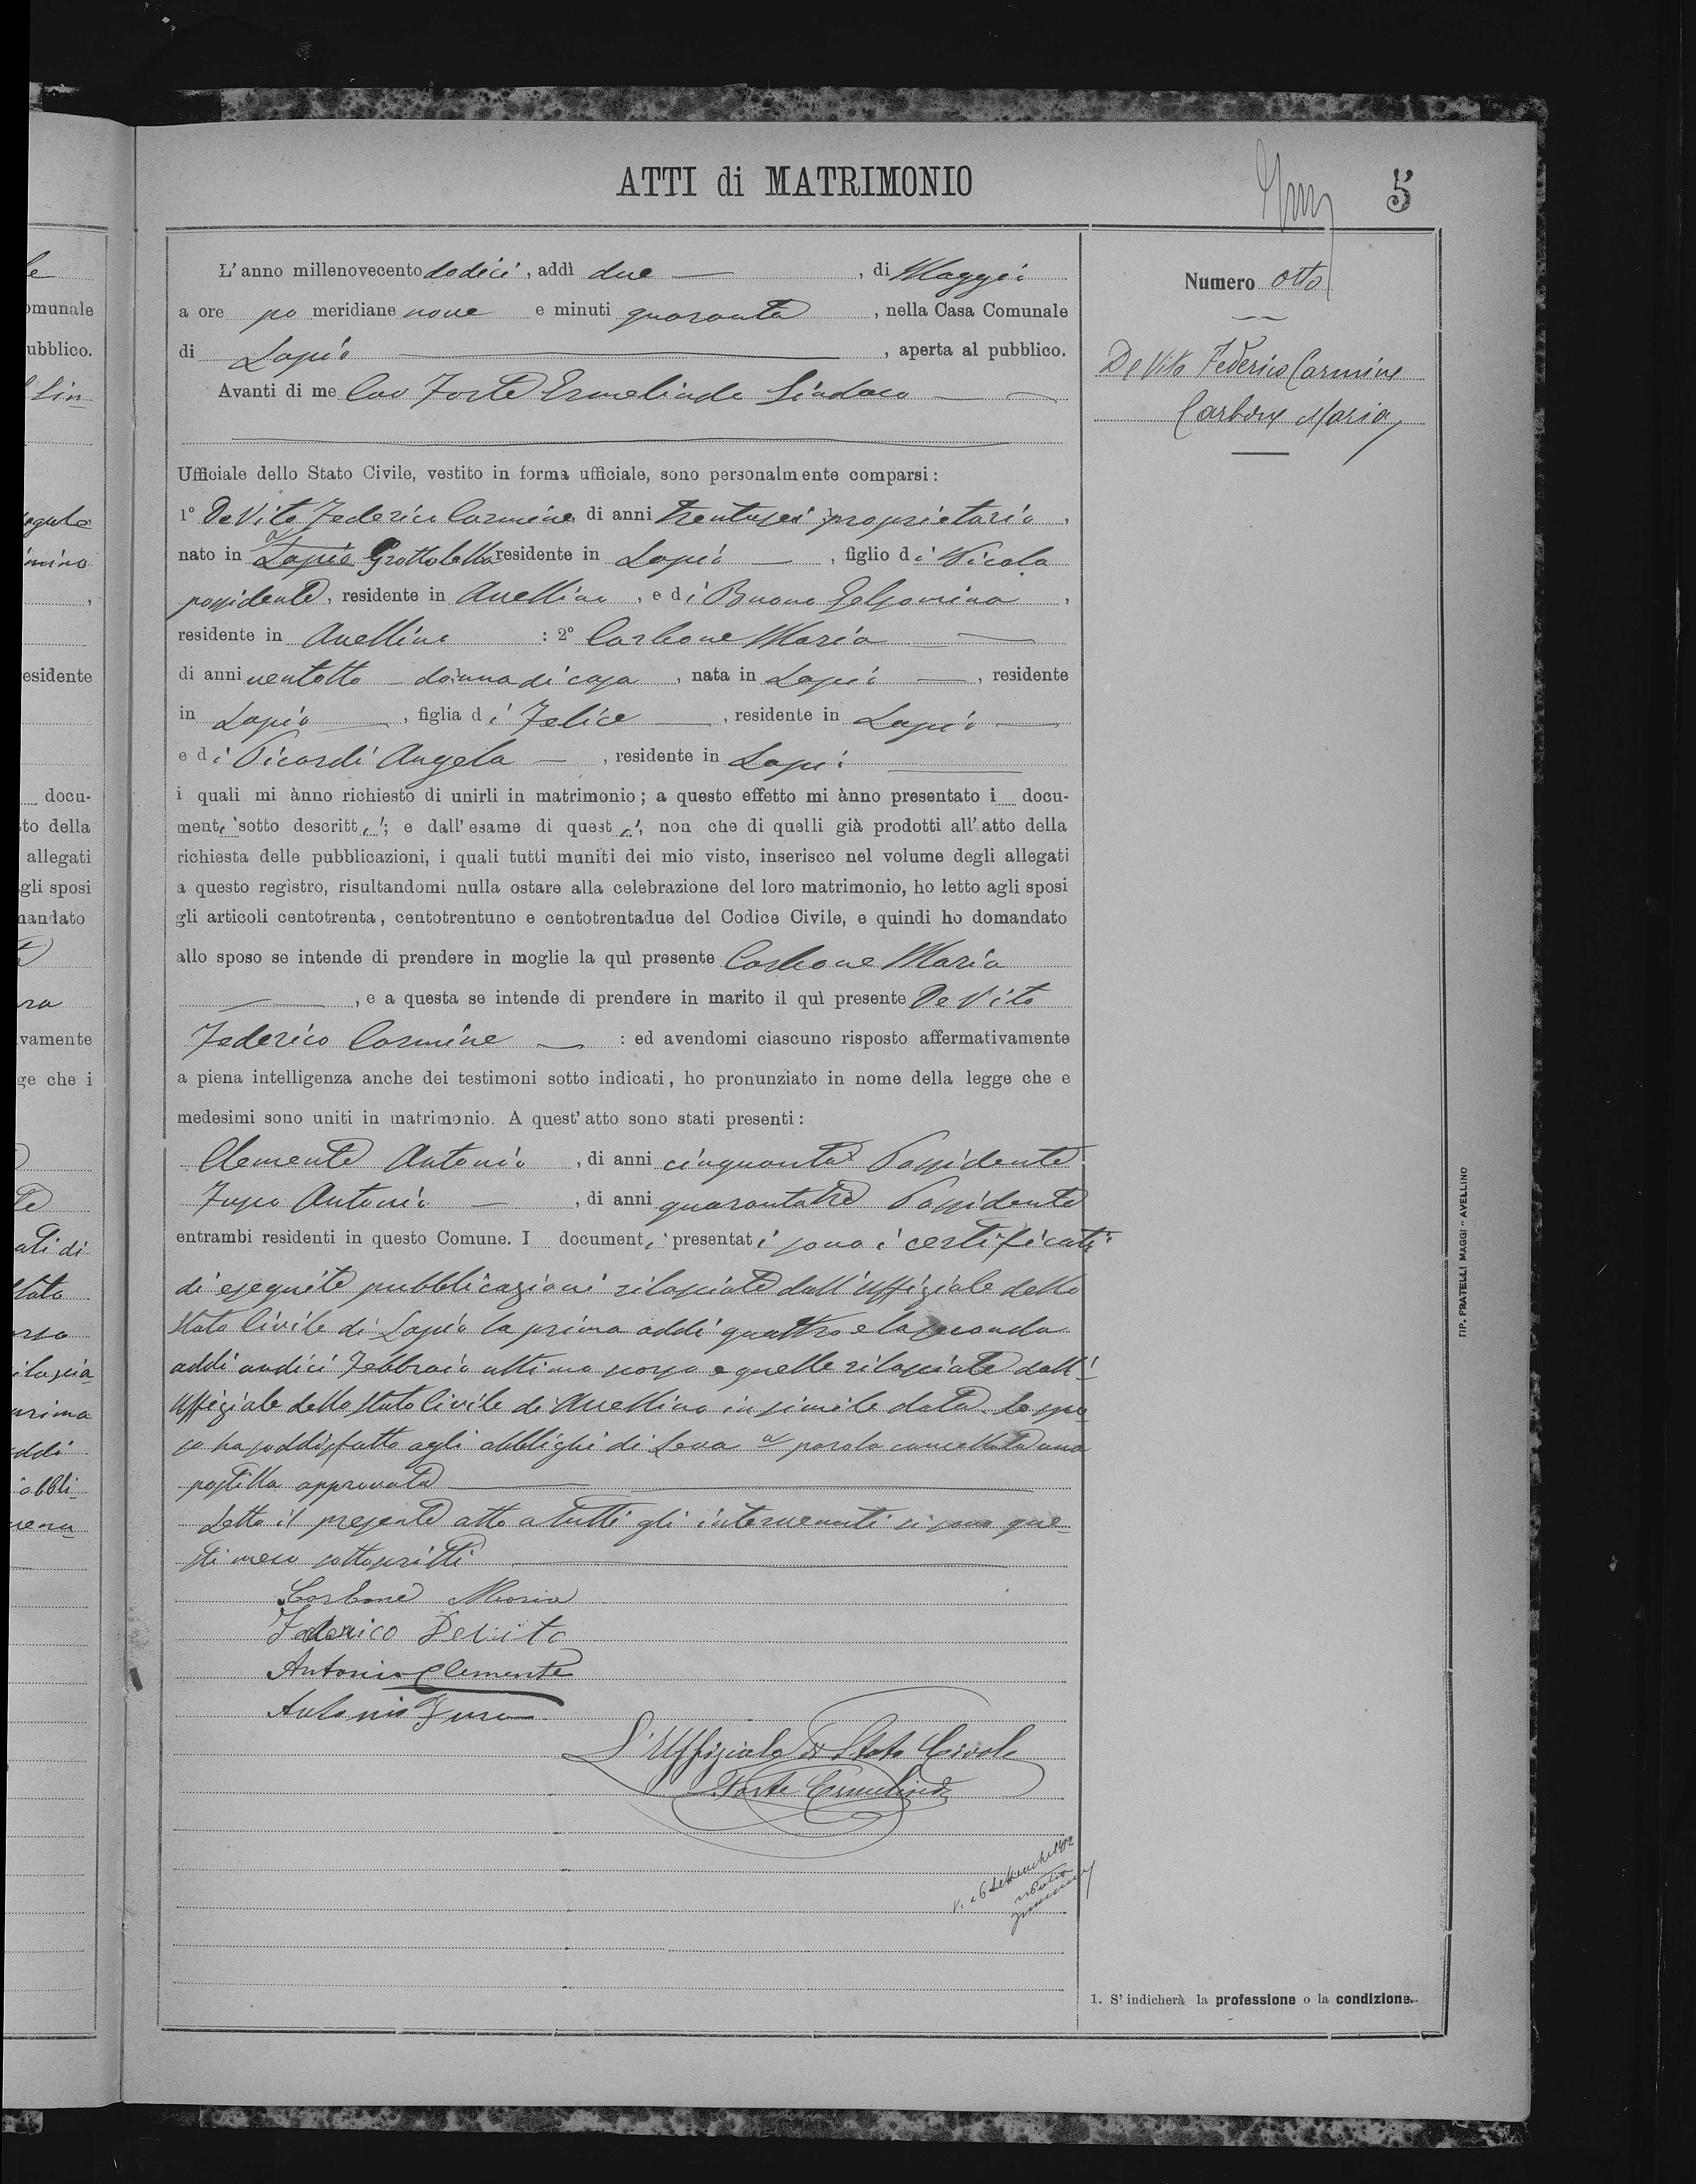 ATTI di MATRIMONIO
5
L'anno millenovecento dodici, addì due, di Maggio
a ore po meridiane nove e minuti quaranta, nella Casa Comunale
di Lapio, aperta al pubblico.
Avanti di me Cav Forte Ermelindo Sindaco
Ufficiale dello Stato Civile, vestito in forma ufficiale, sono personalmente comparsi:
1° De Vito Federico Carmine, di anni trentasei proprietario,
nato in Lapio Grottolella residente in Lapio, figlio di Nicola
possidente, residente in Avellino, e di Buono Gelsomina,
residente in Avellino : 2° Carbone Maria
di anni ventotto donna di casa, nata in Lapio, residente
in Lapio, figlia di Felice, residente in Lapio
e di Picardi Angela, residente in Lapio
i quali mi ànno richiesto di unirli in matrimonio; a questo effetto mi ànno presentato i docu-
menti sotto descritti; e dall'esame di questi, non che di quelli già prodotti all'atto della
richiesta delle pubblicazioni, i quali tutti muniti dei mio visto, inserisco nel volume degli allegati
a questo registro, risultandomi nulla ostare alla celebrazione del loro matrimonio, ho letto agli sposi
gli articoli centotrenta, centotrentuno e centotrentadue del Codice Civile, e quindi ho domandato
allo sposo se intende di prendere in moglie la quì presente Carbone Maria
, e a questa se intende di prendere in marito il quì presente De Vito
Federico Carmine : ed avendomi ciascuno risposto affermativamente
a piena intelligenza anche dei testimoni sotto indicati, ho pronunziato in nome della legge che e
medesimi sono uniti in matrimonio. A quest'atto sono stati presenti:
Clemente Antonio, di anni cinquanta Possidente
Antonio, di anni quarantatre Possidente
entrambi residenti in questo Comune. I documenti presentati sono i certificati
di eseguite pubblicazioni rilasciate dall'Uffiziale dello
Stato Civile di Lapio la prima addì quattro e la seconda
addì undici Febbraio ultimo scorso e quelle rilasciate dall'
Uffiziale dello Stato Civile di Avellino in simile data. Lo spo
so ha soddisfatto agli obblighi di Leva a parola cancellata una
postilla approvata
Letto il presente atto a tutti gli intervenuti si sono que-
sti meco sottoscritti
Carbone Maria
Federico Devito
Antonio Clemente
Antonio
L'Uffiziale di Stato Civile
Forte Ermelindo
V. a 6 Settembre 1912
Numero otto
De Vito Federico Carmine
Carbone Maria
1. S'indicherà la professione o la condizione.
TIP. FRATELLI MAGGI - AVELLINO
le
omunale
ubblico.
Sin-
esidente
docu-
to della
allegati
gli sposi
nandato
ra
vamente
ge che i
ati di
stato
rso
ilascia
prima
addì
obbli-